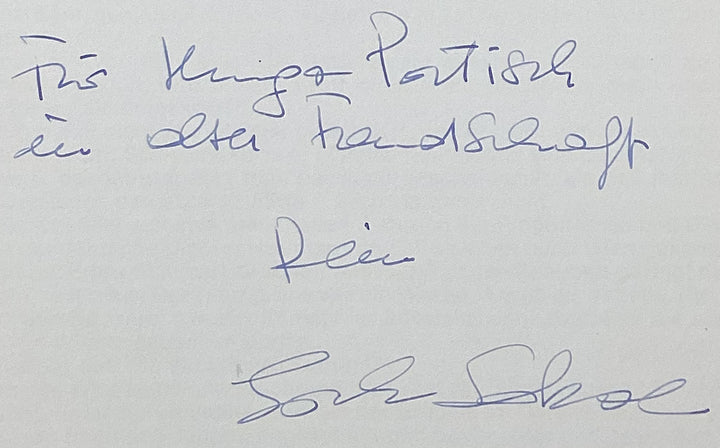 Für Hugo Portisch
in alter Freundschaft
Dein
Erich Sokol